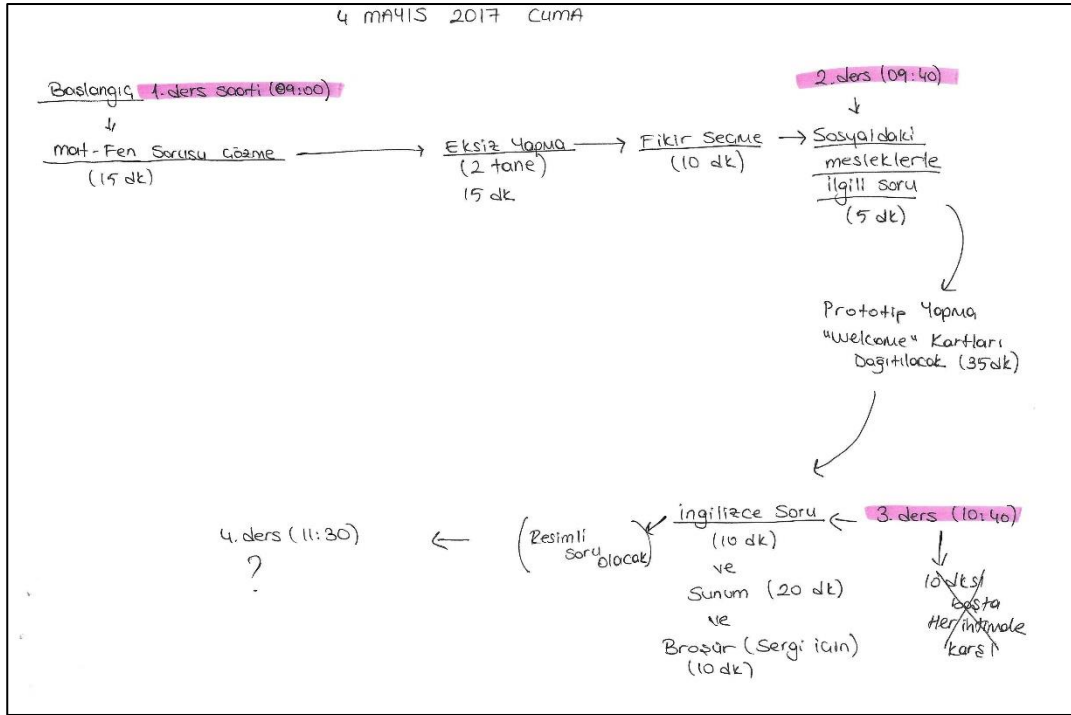 4 MAYIS 2017 CUMA
Başlangıç 1. ders saati (09:00)
Mat-Fen Sorusu Çözme
(15 dk)
Eksiz Yapma
(2 tane)
15 dk
Fikir Seçme
(10 dk)
2. ders (09:40)
Sosyaldaki
mesleklerle
ilgili soru
(5 dk)
Prototip Yapma
"Welcome" Kartları
Dağıtılacak (35 dk)
3. ders (10:40)
10 dksı
boşta
Her ihtimale
karşı
İngilizce Soru
(10 dk)
ve
Sunum (20 dk)
ve
Broşür (Sergi için)
(10 dk)
(Resimli
soru olacak)
4. ders (11:30)
?